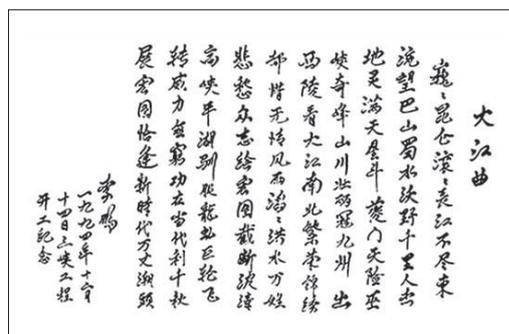 大江曲
巍〻昆仑滚〻长江不尽东
流望巴山蜀水沃野千里人杰
地灵满天星斗夔门天险巫
峡奇峰山川壮丽冠九州 出
西陵看大江南北繁荣锦绣
却惜无情风雨滔〻洪水万姓
悲愁众志绘宏图截断波涛
高峡平湖驯服龙虬巨轮飞
转威力無窮功在当代利千秋
展宏图恰逢新时代万丈潮头
李鹏
一九九四年十二月
十四日三峡工程
开工纪念